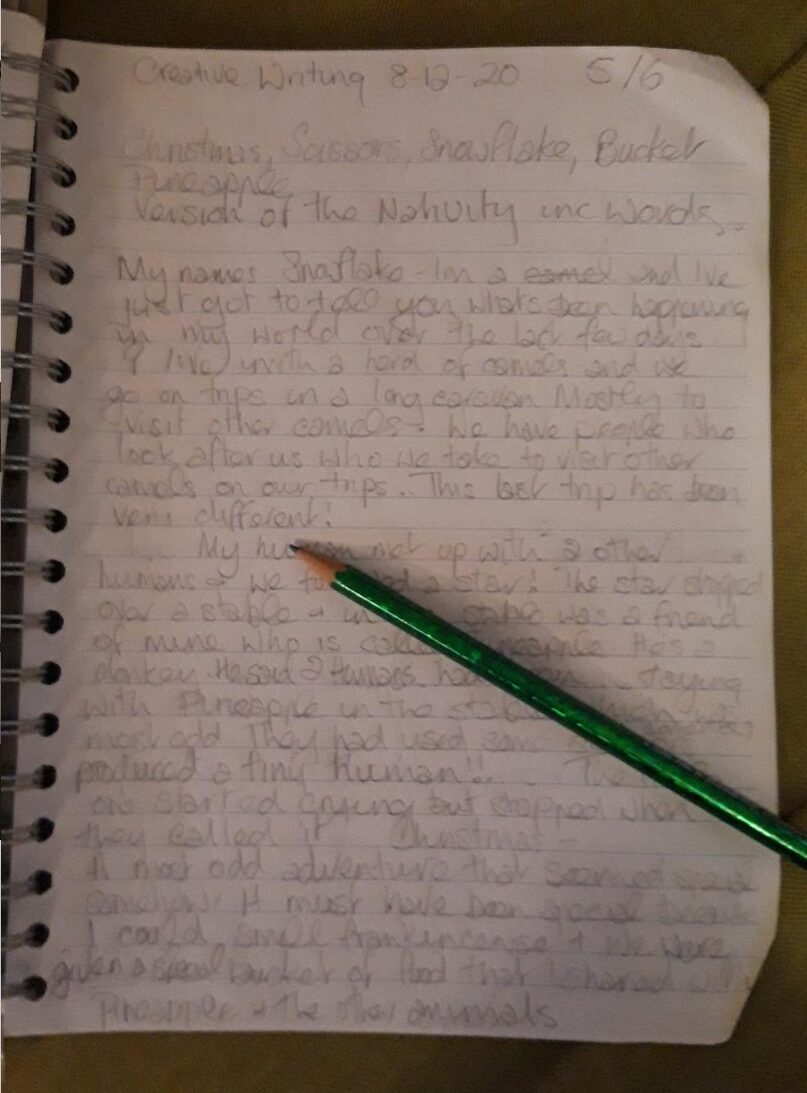 Creative Writing 8-12-20 5/6
Christmas, Scissors, Snowflake, Bucket
Pineapple
Version of the Nativity inc Words...
My names Snoflake - Im a camel and Ive
just got to tell you whats been happening
in my world over the last few days
I live with a herd of camels and we
go on trips in a long caravan Mostly to
visit other camels. We have people who
look after us who we take to visit other
camels on our trips. This last trip has been
very different!
My human met up with 2 other
humans & we a star! The star stopped
over a stable & in stable was a friend
of mine who is Pineapple Hes a
donkey. He said 2 humans staying
with Pineapple in the
most odd They had used some
produced a tiny human!!
one started crying but stopped when
they called it Christmas
A most odd adventure that seemed
somehow. It must have been special
I could smell frankincense & we were
given a bucket of food that I shared with
Pineapple & the other animals